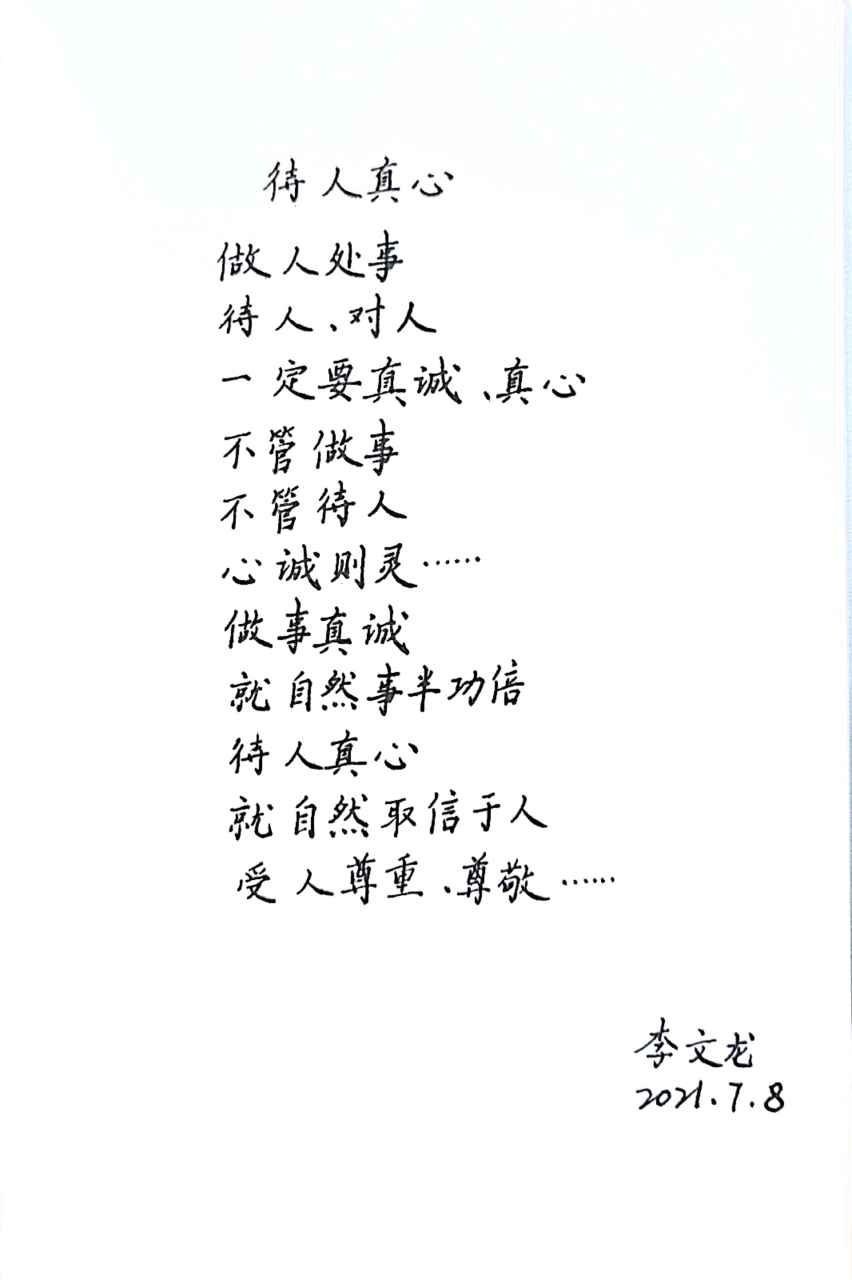 待人真心
做人处事
待人、对人
一定要真诚、真心
不管做事
不管待人
心诚则灵……
做事真诚
就自然事半功倍
待人真心
就自然取信于人
受人尊重、尊敬……
李文龙
2021.7.8